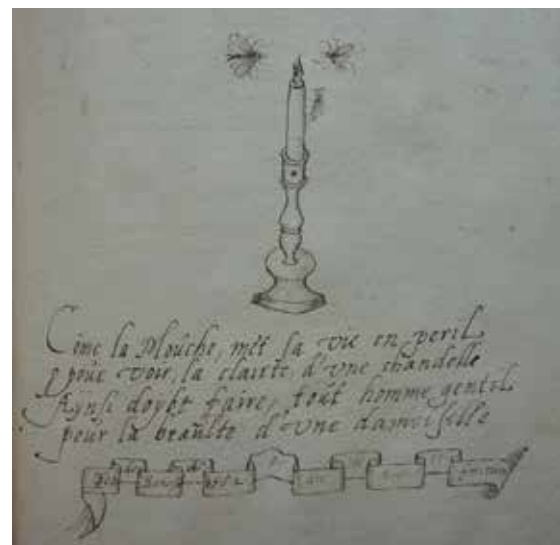 Cõme la Mouche, met sa vie en peril
pour voir, la clairte d'vne chandelle
Aynsi doybt faire, tout homme gentil
pour la beaulte d'vne damoiselle